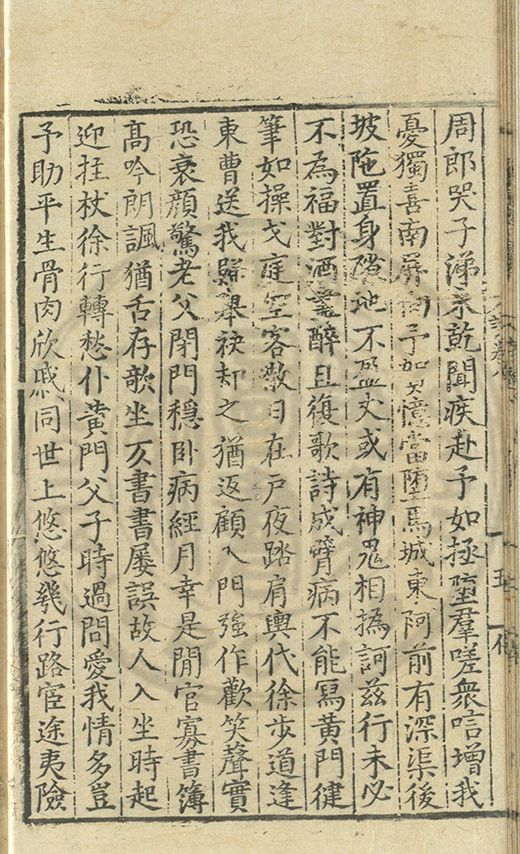 周郎哭子涕未乾聞疾赴予如拯墮羣嗟衆唁增我
憂獨喜南屏向予如又憶當墮馬城東阿前有深渠後
坡陁置身隧地不盈丈或有神鬼相撝訶茲行未必
不為福對酒盡醉且復歌詩成臂病不能寫黃門健
筆如操戈庭空客散日在戶夜踏肩輿代徐步道逢
東曹送我歸舉袂却之猶返顧入門強作歡笑聲實
恐衰顏驚老父閉門穩臥病經月幸是閒官寡書簿
高吟朗諷猶舌存歌坐亥書書屢誤故人入坐時起
迎拄杖徐行轉愁仆黃門父子時過問愛我情多豈
予助平生骨肉欣戚同世上悠悠幾行路宦途夷險